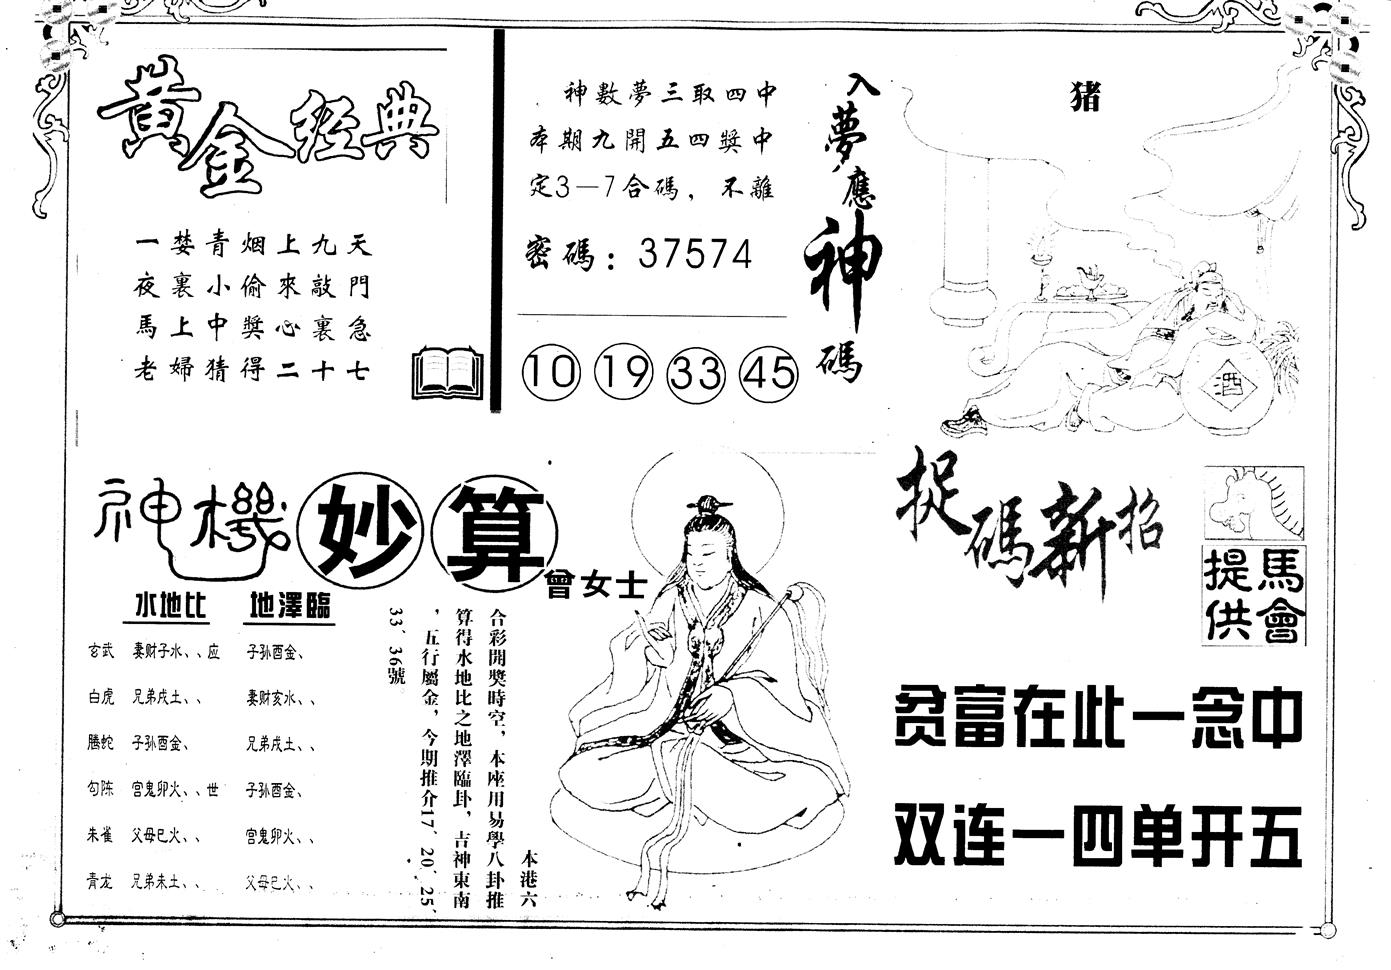 黄金经典
一婪青烟上九天
夜裏小偷來敲門
馬上中獎心裏急
老婦猜得二十七
神數夢三取四中
本期九開五四獎中
定3—7合碼，不離
密碼：37574
10 19 33 45
入夢應神碼
猪
酒
神機妙算
曾女士
水地比 地澤臨
玄武 妻财子水、、应 子孙酉金、
白虎 兄弟戌土、、 妻财亥水、、
騰蛇 子孙酉金、 兄弟戌土、、
勾陈 官鬼卯火、、世 子孙酉金、
朱雀 父母巳火、、 官鬼卯火、、
青龙 兄弟未土、、 父母巳火、、
本港六
合彩開獎時空，本座用易學八卦推
算得水地比之地澤臨卦，吉神東南
，五行屬金，今期推介17、20、25、
33、36號
捉碼新招
馬會
提供
贫富在此一念中
双连一四单开五